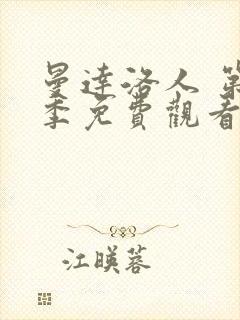 曼達洛人 第
季免費觀看
江暎蓉